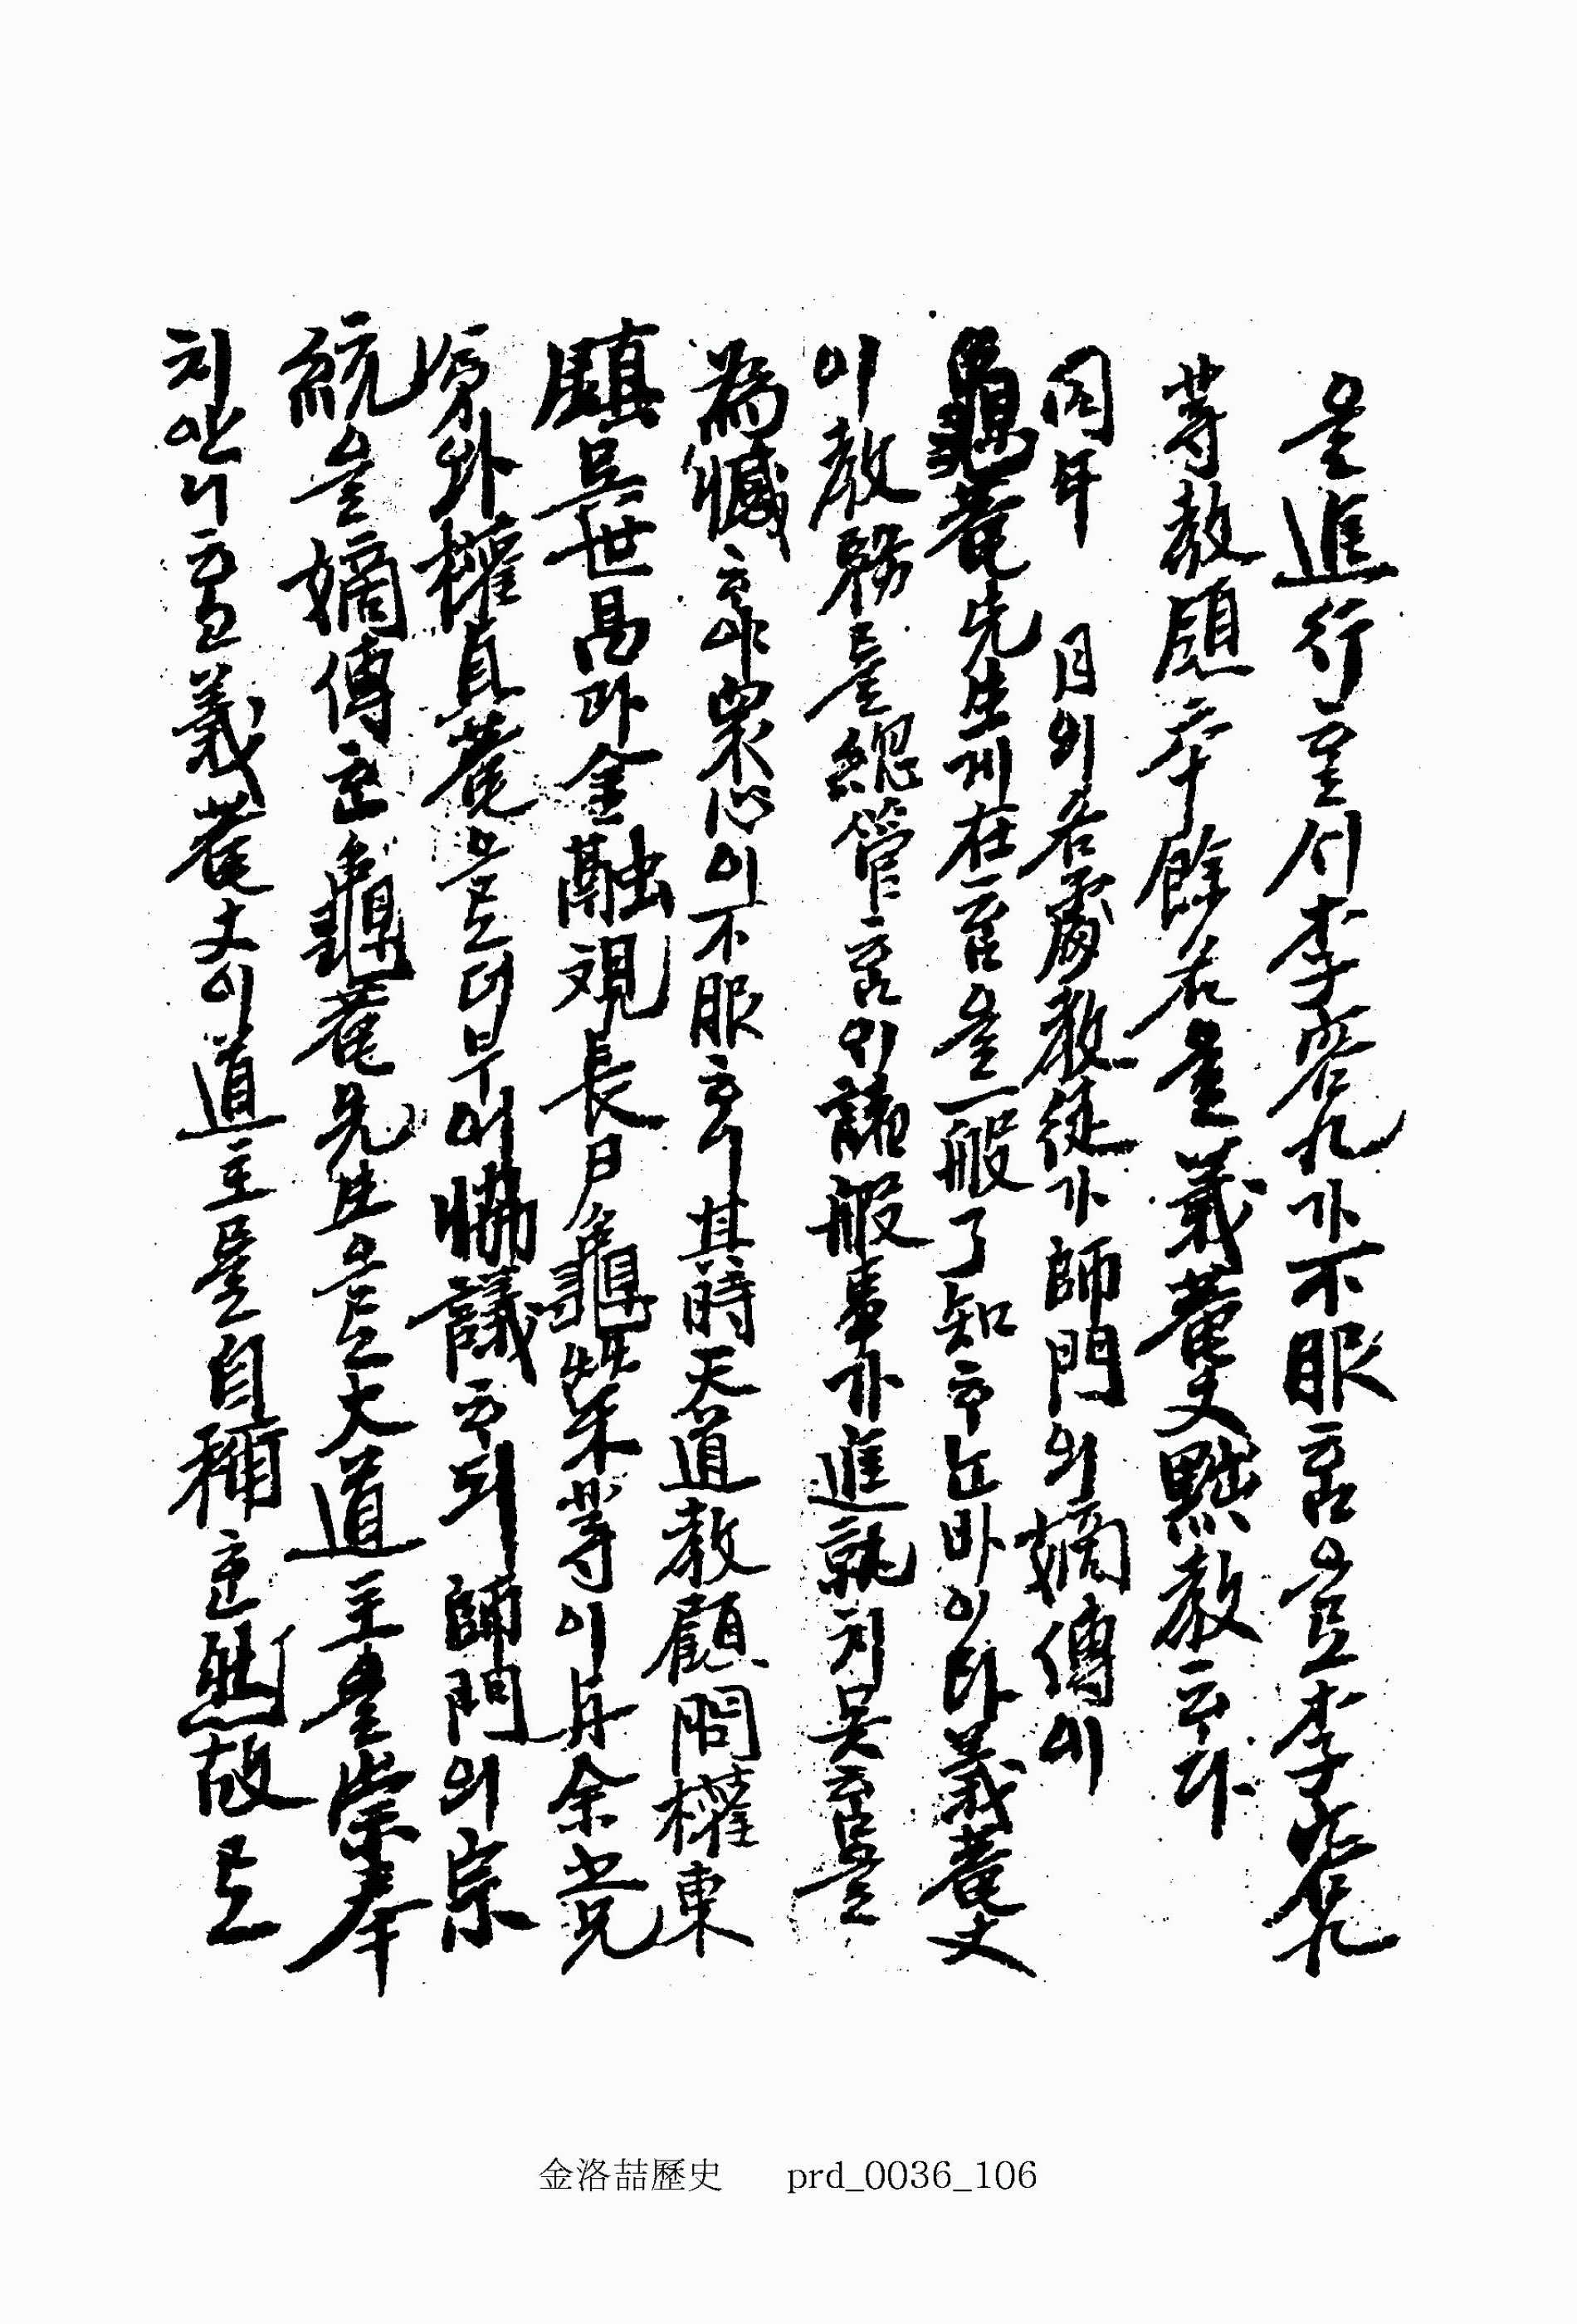 을進行하 시李容九가不服함으로李容九
等敎頭六十餘名을義菴丈黜敎하다
同年 月의各處敎徒가師門의嫡傳이
龜菴先生게在함을一般了知하는바이라義菴丈
이敎務를總管함의諸般事가進就치못함을
為憾하야衆心이不服하니其時天道敎顧問權東
鎮吳世昌과金融觀長戶龜柴等이舟余
外權直菴으로더부러協議하되師門의宗
統을嫡傳한龜菴先生으로大道主를崇奉
치안니하고義菴丈이道主로自稱한然故로
金洛喆歷史 prd_0036_106